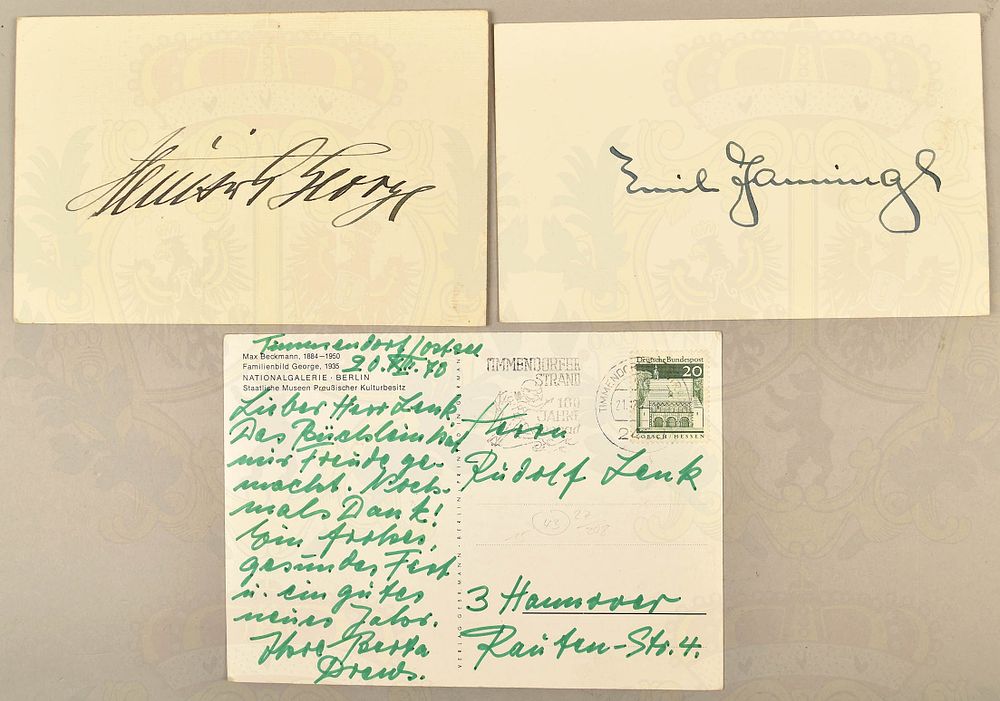 Heinrich George
Emil Jannings
Timmendorf/Ostsee
20.XII.70
Max Beckmann, 1884–1950
Familienbild George, 1935
NATIONALGALERIE · BERLIN
Staatliche Museen Preußischer Kulturbesitz
Lieber Herr Lenk
Das Büchlein hat
mir Freude ge-
macht. Noch-
mals Dank!
Ein frohes,
gesundes Fest
u. ein gutes
neues Jahr.
Ihre Berta
Drews.
TIMMENDORFER
STRAND
100
JAHRE
Deutsche Bundespost
20
LORSCH / HESSEN
Herrn
Rudolf Lenk
3 Hannover
Rauten-Str. 4.